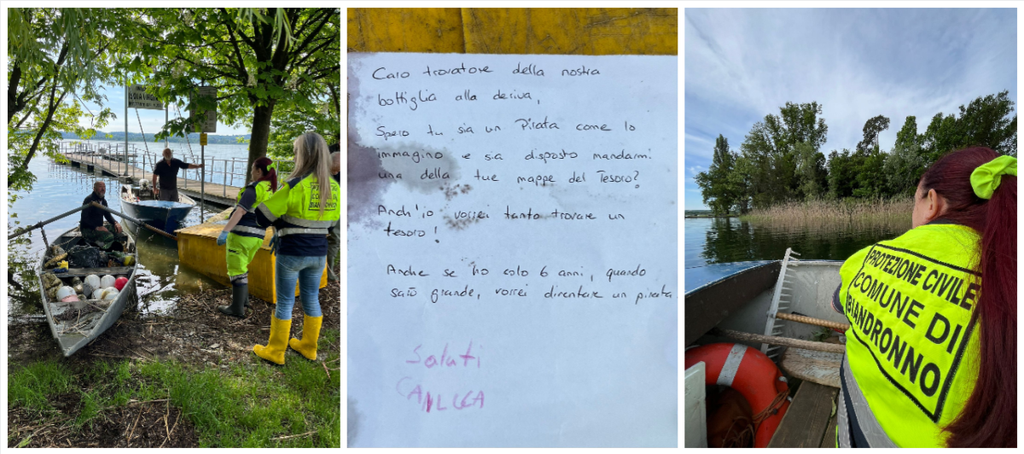 Caro trovatore della nostra
bottiglia alla deriva,
Spero tu sia un Pirata come lo
immagino e sia disposto mandarmi
una della tue mappe del Tesoro?
Anch'io vorrei tanto trovare un
tesoro!
Anche se ho solo 6 anni, quando
sarò grande, vorrei diventare un pirata
Saluti
PROTEZIONE CIVILE
COMUNE DI
BIANDRONNO